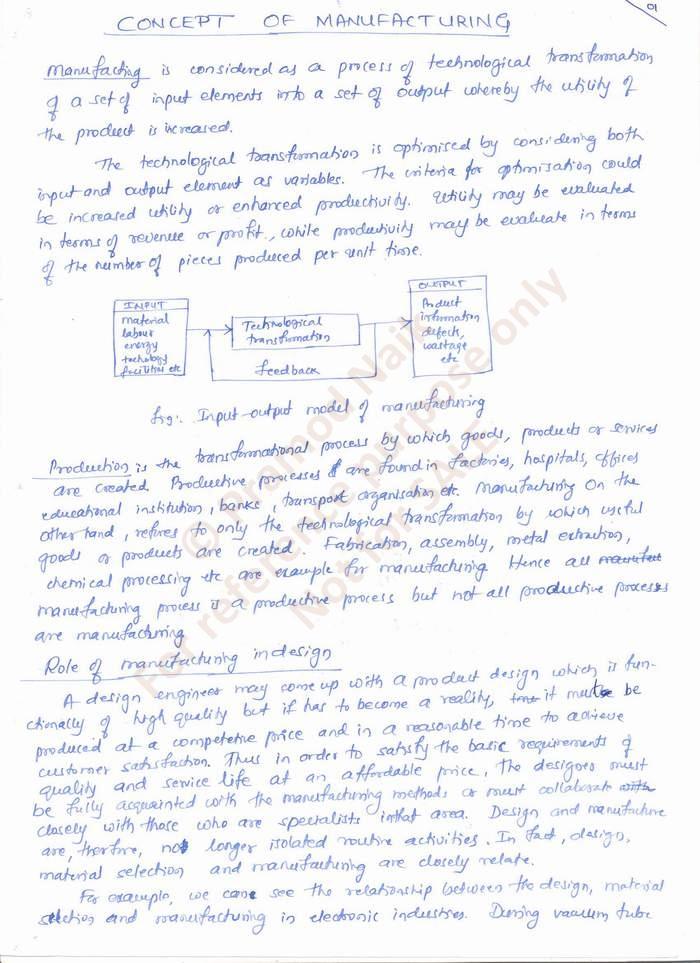 01
CONCEPT OF MANUFACTURING
Manufacting is considered as a process of technological transformation
of a set of input elements into a set of output whereby the utility of
the product is increased.
The technological transformation is optimised by considering both
input and output element as variables. The criteria for optimisation could
be increased utility or enhanced productivity. Utility may be evaluated
in terms of revenue or profit., while productivity may be evaluate in terms
of the number of pieces produced per unit time.
INPUT
material
labour
energy
technology
facilities etc
Technological
transformation
feedback
OUTPUT
Product
information
defects,
wastage
etc
fig:. Input-output model of manufacturing
Production is the transformational process by which goods, products or services
are created. Productive processes are found in factories, hospitals, offices
educational institution, banks, transport organisation etc. Manufacturing on the
other hand, refires to only the technological transformation by which useful
goods or products are created. Fabrication, assembly, metal extraction,
chemical processing etc are example for manufacturing Hence all
manufacturing process is a productive process but not all productive processes
are manufacturing
Role of manufacturing in design
A design engineer may come up with a product design which is fun-
ctionally of high quality but if has to become a reality, it must be
produced at a competetive price and in a reasonable time to achieve
customer satisfaction. Thus in order to satisfy the basic requirements of
quality and service life at an affordable price, the designer must
be fully acquainted with the manufacturing methods or must collaborate
closely with those who are specialists in that area. Design and manufacture
are, therfore, no longer isolated routine activities. In fact, design,
material selection and manufacturing are closely relate.
For example, we can see the relationship between the design, material
selection and manufacturing in electronic industries. During vacuum tube
© Pramod Naik
For reference purpose only
Not for SALE